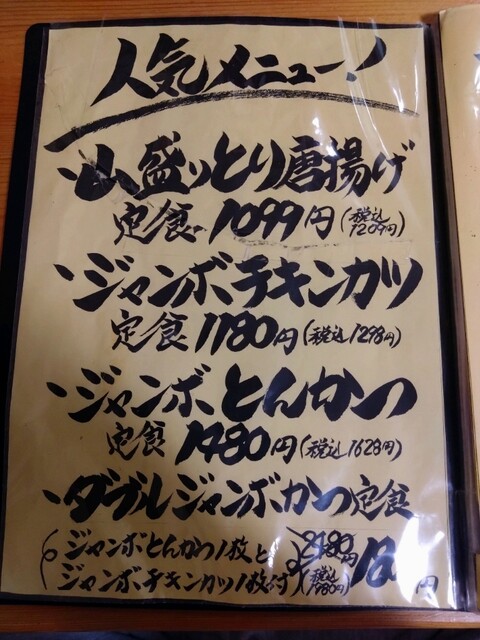 人気メニュー!
・山盛ッとり唐揚げ
定食 1099円(税込1209円)
・ジャンボチキンカツ
定食 1180円(税込1298円)
・ジャンボとんかつ
定食 1480円(税込1628円)
・ダブルジャンボかつ定食
ジャンボとんかつ1枚と 2180円
ジャンボチキンカツ1枚付 (税込1980円) 円